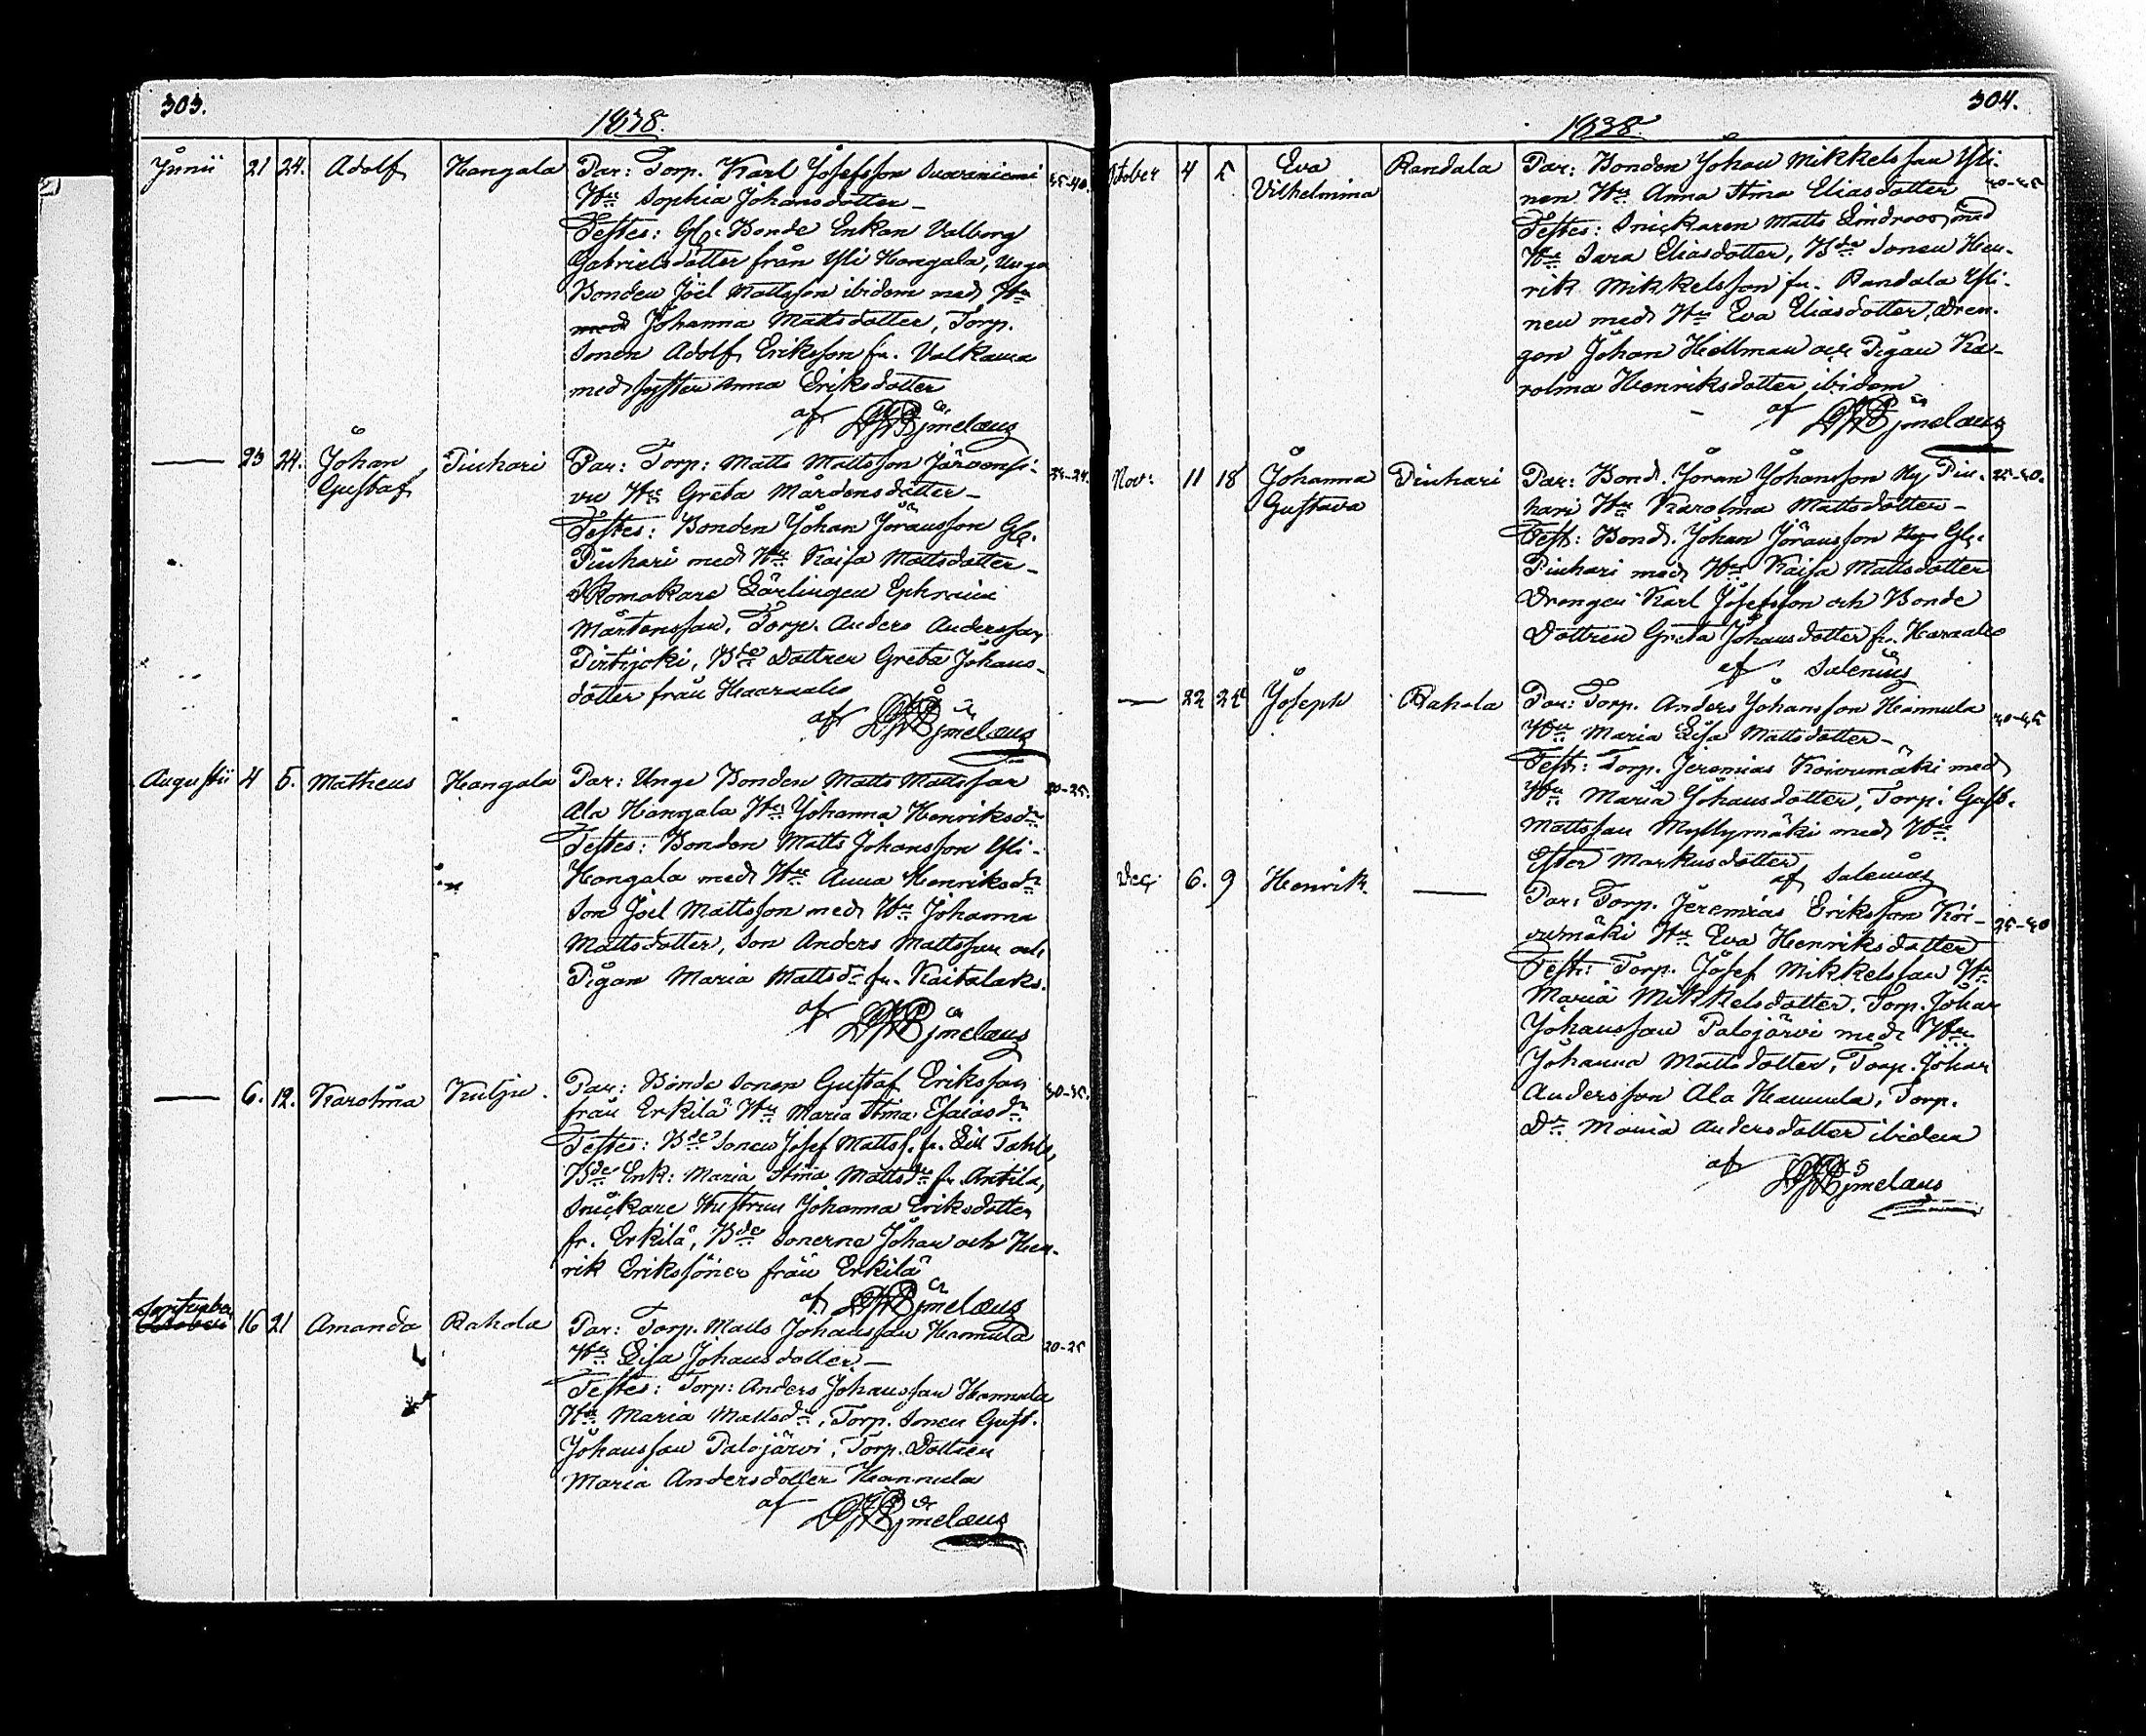 303.
1838.
Junii 21 24. Adolf Hangala Par: Torp. Karl Josefsson Suoraniemi 35-40.
Hu Sophia Johansdotter –
Testes: Gl: Bonde Enkan Valborg
Gabrielsdotter från Yli Hangala, Unga
Bonden Joel Mattsson ibidem med Hu
med Johanna Mattsdotter, Torp.
Sonen Adolf Eriksson fr. Valkama
med syster Anna Eriksdotter
af
— 23 24. Johan Gustaf Piuhari Par: Torp: Matts Mattsson Järvensi-
vu Hu Greta Mårdensdotter –
Testes: Bonden Johan Jöransson Gl.
Piuhari med Hu Kaisa Mattsdotter –
Skomakare Lärlingen Ephraim
Mårtensson, Torp. Anders Andersson
Pirtijoki, Bde Dottren Greta Johans-
dotter från Haaraala
af
Augusti 4 5. Matheus Hangala Par: Unge Bonden Matts Mattsson 20-25.
Ala Hangala Hu Johanna Henriksdr
Testes: Bonden Matts Johansson Yli-
Hangala med Hu Anna Henriksdr
Son Joel Mattsson med Hu Johanna
Mattsdotter, Son Anders Mattsson och
Pigan Maria Mattsdr fr. Kaitalaks.
af
— 6. 12. Karolina Kulju. Par: Bonde Sonen Gustaf Eriksson 30-35.
från Erkilä Hu Maria Stina Esaiasdr
Testes: Bde Sonen Josef Mattss. fr.
Bde Enk: Maria Stina Mattsdr fr. Antila,
Snickare Hustrun Johanna Eriksdotter
fr. Erkilä, Bde Sonerne Johan och Hen-
rik Erikssöner från Erkilä
af
September
16 21 Amanda Rahola Par: Torp. Matts Johansson Hannula 20-25
Hu Lisa Johansdotter –
Testes: Torp: Anders Johansson Hannula
Hu Maria Mattsdr, Torp. Sonen Gust.
Johansson Palojärvi, Torp. Dottren
Maria Andersdotter Hannula
af
304.
1838.
October 4 5 Eva Vilhelmina Randala Par: Bonden Johan Mikkelsson Yli- 40-45
nen Hu Anna Stina Eliasdotter
Testes: Snickaren Matts Lindroos med
Hu Sara Eliasdotter, Bde Sonen Hen-
rik Mikkelsson fr. Randala Yli-
nen med Hu Eva Eliasdotter, Dren-
gen Johan Hellman och Pigan Ka-
rolina Henriksdotter ibidem
af
Nov: 11 18 Johanna Gustava Piuhari Par: Bond. Jöran Johansson Ny Piu- 35-40.
hari Hu Karolina Mattsdotter –
Test: Bond. Johan Jöransson Ny Gl.
Piuhari med Hu Kaisa Mattsdotter
Drengen Karl Josefsson och Bonde
Dottren Greta Johansdotter fr. Haraala
af Salenius
— 22 25 Joseph Rahola Par: Torp. Anders Johansson Hannula 40-45
Hu Maria Lisa Mattsdotter –
Test: Torp. Jeremias Koivumäki med
Hu Maria Johansdotter, Torp: Gust.
Mattsson Myllymäki med Hu
Ester Markusdotter
af Salenius
Dec: 6. 9 Henrik — Par: Torp. Jeremias Eriksson Koi- 35-40
vumäki Hu Eva Henriksdotter
Test: Torp. Josef Mikkelsson Hu
Maria Mikkelsdotter, Torp. Johan
Johansson Palojärvi med Hu
Johanna Mattsdotter, Torp. Johan
Andersson Ala Hannula, Torp.
Dr Maria Andersdotter ibidem
af